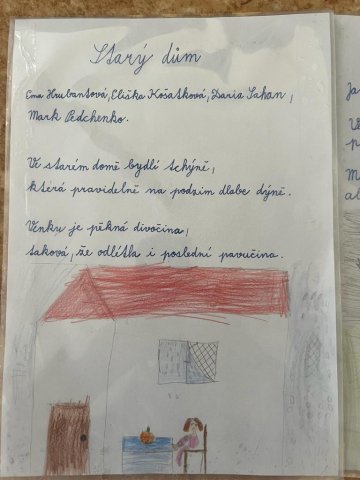 Starý dům
Ema Hrubantová, Eliška Košatková, Daria Sahan,
Mark Pedchenko.
Ve starém domě bydlí tchýně,
která pravidelně na podzim dlabe dýně.
Venku je pěkná divočina,
taková, že odlétla i poslední pavučina.